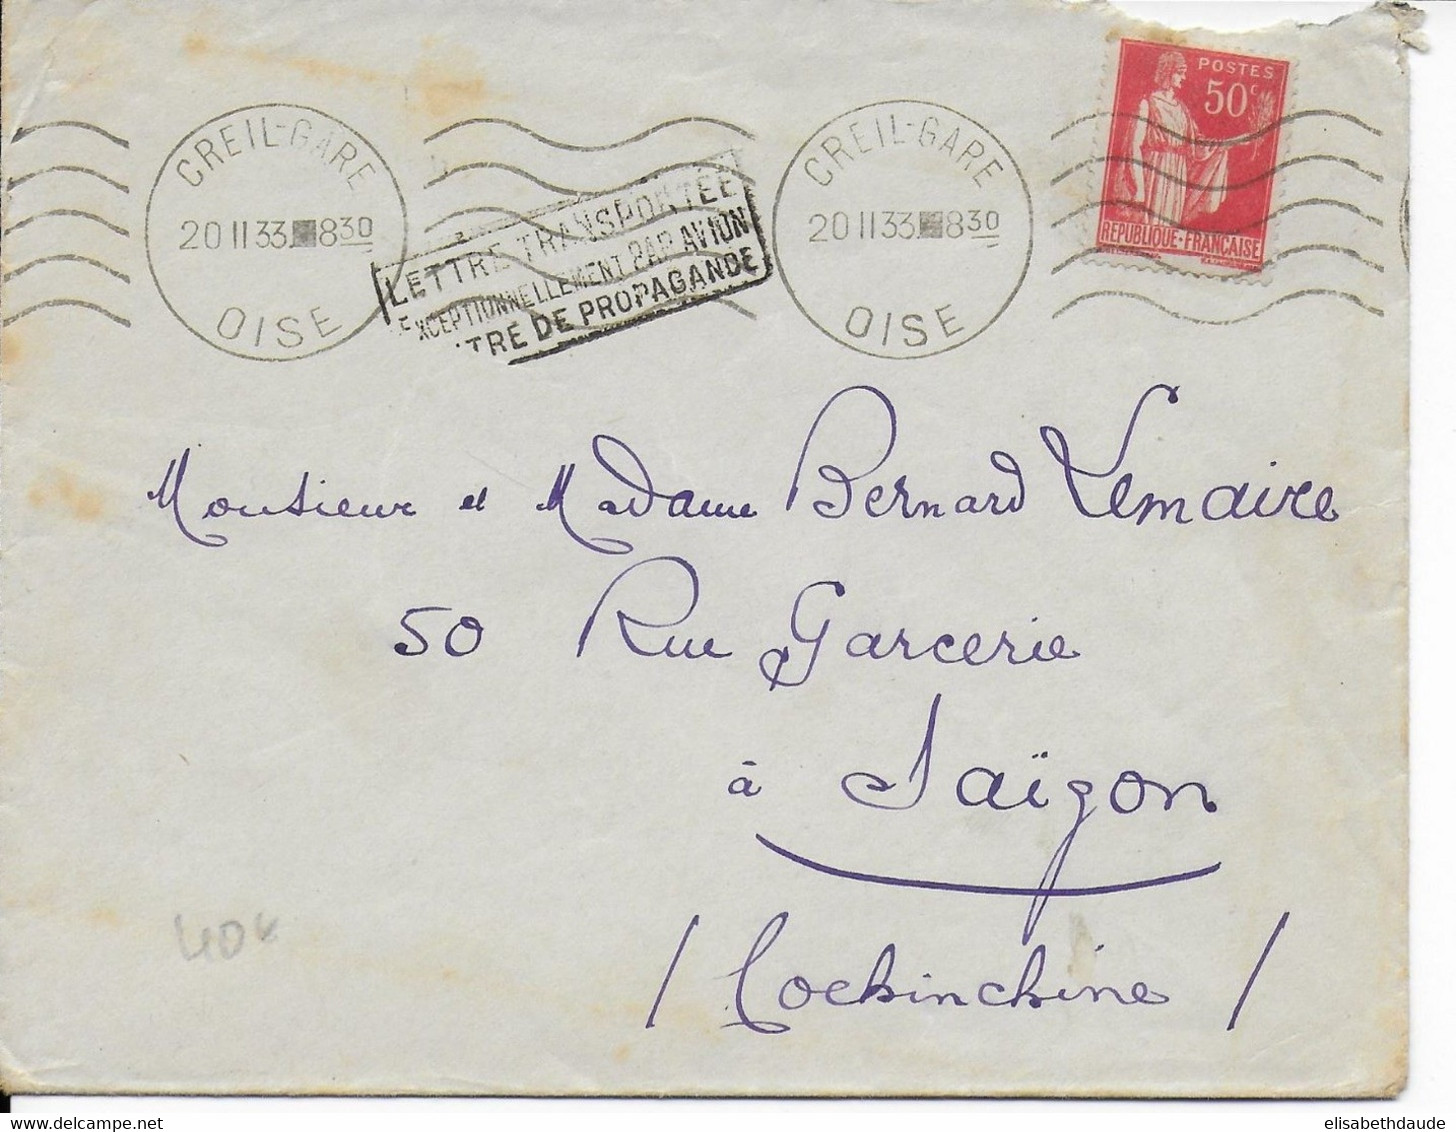 CREIL-GARE
20 II 33 8 30
OISE
LETTRE TRANSPORTÉE
EXCEPTIONNELLEMENT PAR AVION
TRE DE PROPAGANDE
CREIL-GARE
20 II 33 8 30
OISE
POSTES
50 c
REPUBLIQUE-FRANÇAISE
Monsieur et Madame Bernard Lemaire
50 Rue Garcerie
à Saïgon
/ Cochinchine /
40 €
elisabethdaude